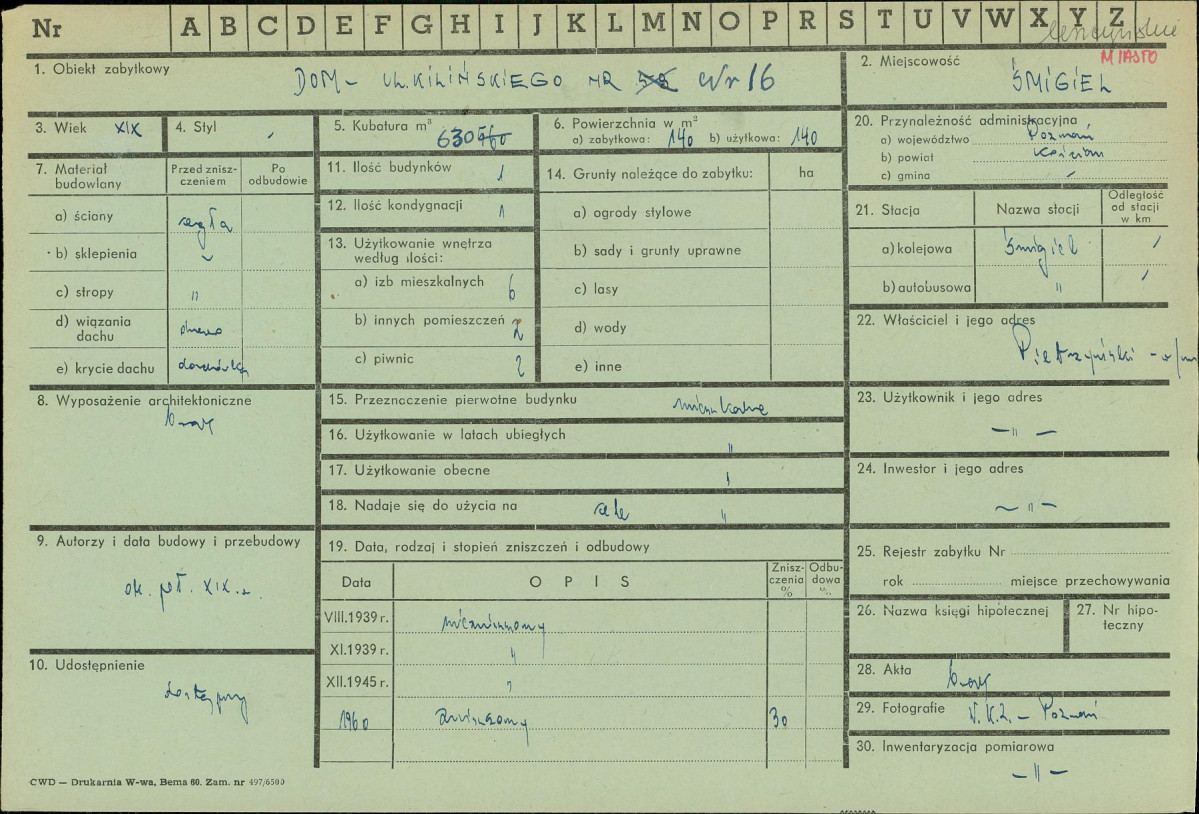 Nr A B C D E F G H I J K L M N O P R S T U V W X Y Z
leszczyńskie
MIASTO
1. Obiekt zabytkowy
DOM - UL. KILIŃSKIEGO NR Nr 16
2. Miejscowość
ŚMIGIEL
3. Wiek XIX
4. Styl
5. Kubatura m³ 630
6. Powierzchnia w m²
a) zabytkowa: 140 b) użytkowa: 140
20. Przynależność administracyjna
a) województwo Poznań
b) powiat Kościan
c) gmina
7. Materiał budowlany
Przed zniszczeniem
Po odbudowie
a) ściany cegła
b) sklepienia
c) stropy "
d) wiązania dachu drewno
e) krycie dachu dachówka
11. Ilość budynków 1
12. Ilość kondygnacji 1
13. Użytkowanie wnętrza według ilości:
a) izb mieszkalnych 6
b) innych pomieszczeń 2
c) piwnic 2
14. Grunty należące do zabytku: ha
a) ogrody stylowe
b) sady i grunty uprawne
c) lasy
d) wody
e) inne
21. Stacja
Nazwa stacji
Odległość od stacji w km
a) kolejowa Śmigiel
b) autobusowa "
22. Właściciel i jego adres
Pietrzyński - w/m
8. Wyposażenie architektoniczne
brak
15. Przeznaczenie pierwotne budynku mieszkalne
16. Użytkowanie w latach ubiegłych "
17. Użytkowanie obecne "
18. Nadaje się do użycia na cele "
23. Użytkownik i jego adres
- " -
24. Inwestor i jego adres
- " -
9. Autorzy i data budowy i przebudowy
ok. poł. XIX w.
19. Data, rodzaj i stopień zniszczeń i odbudowy
Data
OPIS
Zniszczenia %
Odbudowa %
VIII.1939 r. niezniszczony
XI.1939 r. "
XII.1945 r. "
1960 zniszczony 30
25. Rejestr zabytku Nr
rok miejsce przechowywania
26. Nazwa księgi hipotecznej
27. Nr hipoteczny
10. Udostępnienie
dostępny
28. Akta brak
29. Fotografie W.K.Z. - Poznań
30. Inwentaryzacja pomiarowa
- " -
CWD — Drukarnia W-wa, Bema 60. Zam. nr 497/6500